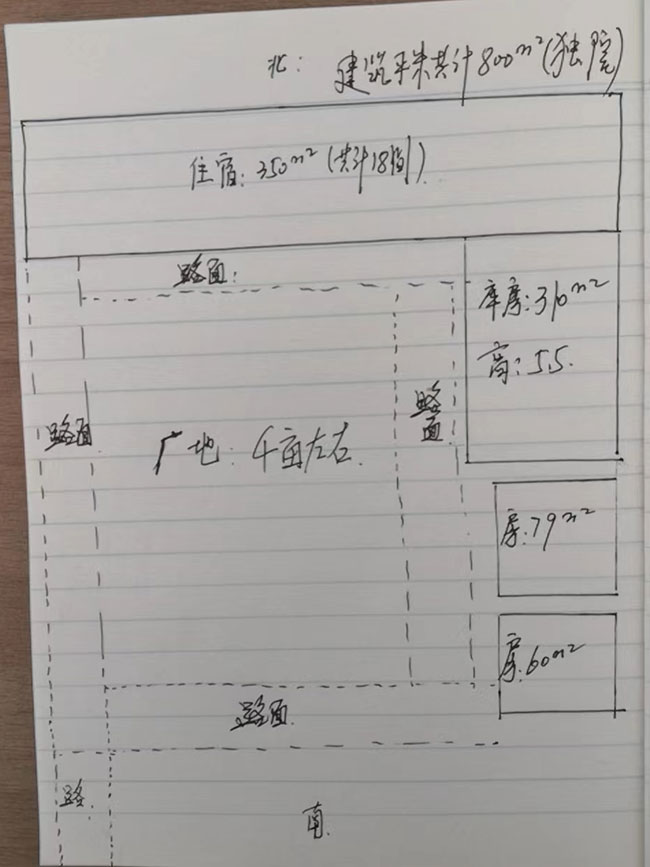 北: 建筑平米共计800m²(独院)
住宿:350m²(共计18间)
路面:
库房:310m²
高:5.5.
路面
路面
广地:4亩左右.
房:79m²
房:60m²
路面.
路.
南.